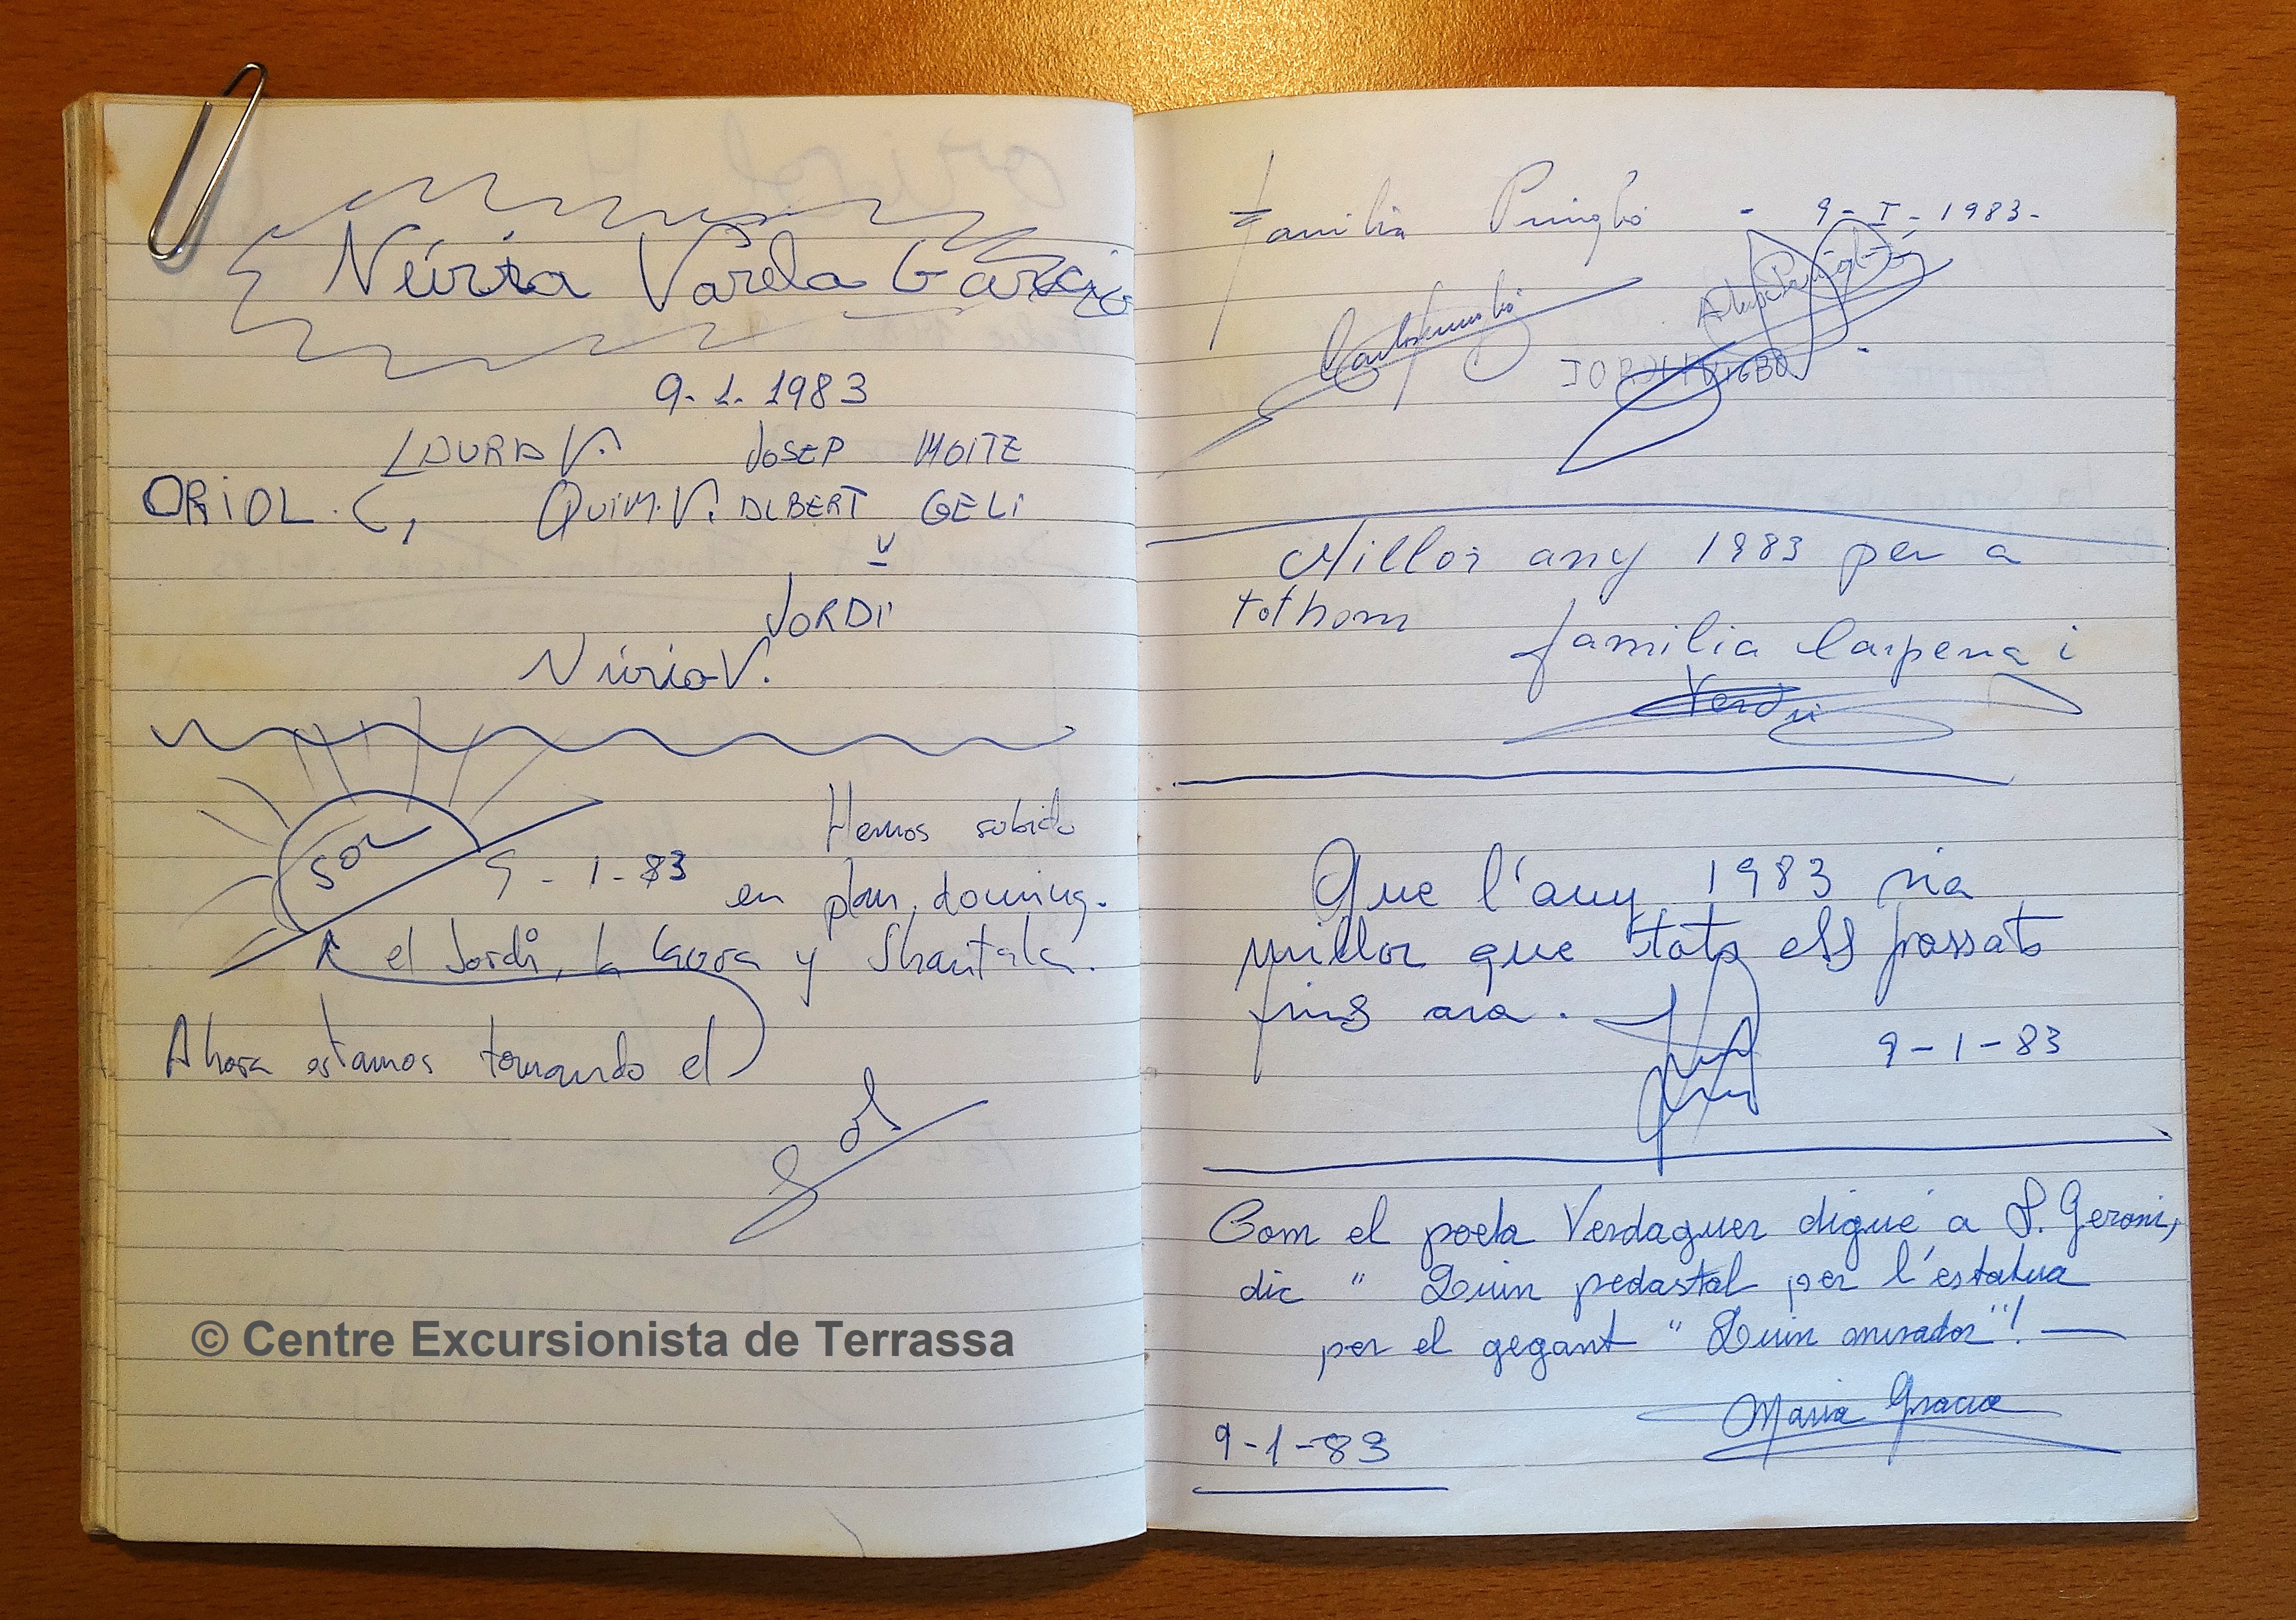 Núria Varela Garcia
9-1-1983
LAURA V. JOSEP MOITZ
ORIOL. C, QUIM.V. ALBERT GELI
V
JORDI
Núria V.
SOL
Hemos subido
9-1-83 en plan doming.
el Jordi, la Laura y Shantala.
Ahora estamos tomando el
Sol
© Centre Excursionista de Terrassa
Familia Puigbó - 9-I-1983-
Carlos Puigbó
JORDI PUIGBO
Millor any 1983 per a
tothom
familia Carpena i
Verdú
Que l'any 1983 sia
millor que tots els passats
fins ara.
9-1-83
Com el poeta Verdaguer digué a S. Geroni,
dic " Quin pedastal per l'estatua
per el gegant " Quin mirador"!
Maria Gracia
9-1-83